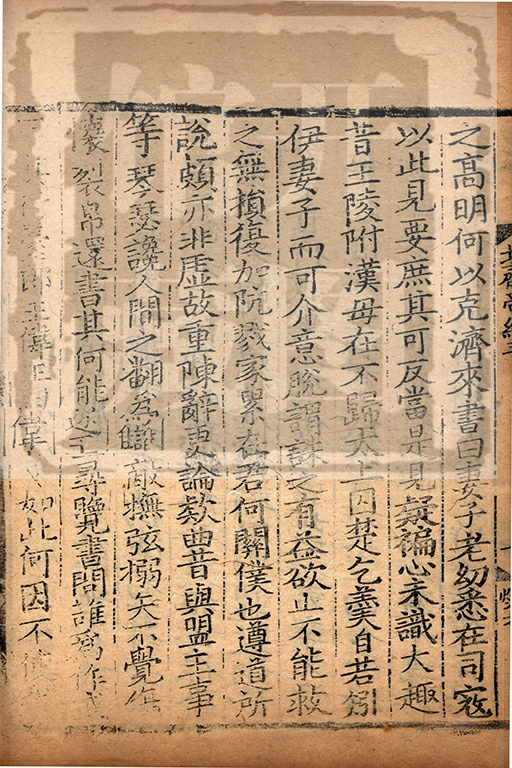 之高明何以克濟來書曰妻子老幼悉在司寇
以此見要庶其可反當是見疑褊心未識大趣
昔王陵附漢母在不歸太上囚楚乞羹自若矧
伊妻子而可介意脫謂誅之有益欲止不能救
之無損復加阬戮家累在君何關僕也遵道所
說頗亦非虛故重陳辭更論欵曲昔與盟主事
等琴瑟讒人間之翻為讎敵撫弦搦矢不覺傷
懷裂帛還書其何能述王尋覽書問誰為作或
郎王偉王曰偉才如此何因不使